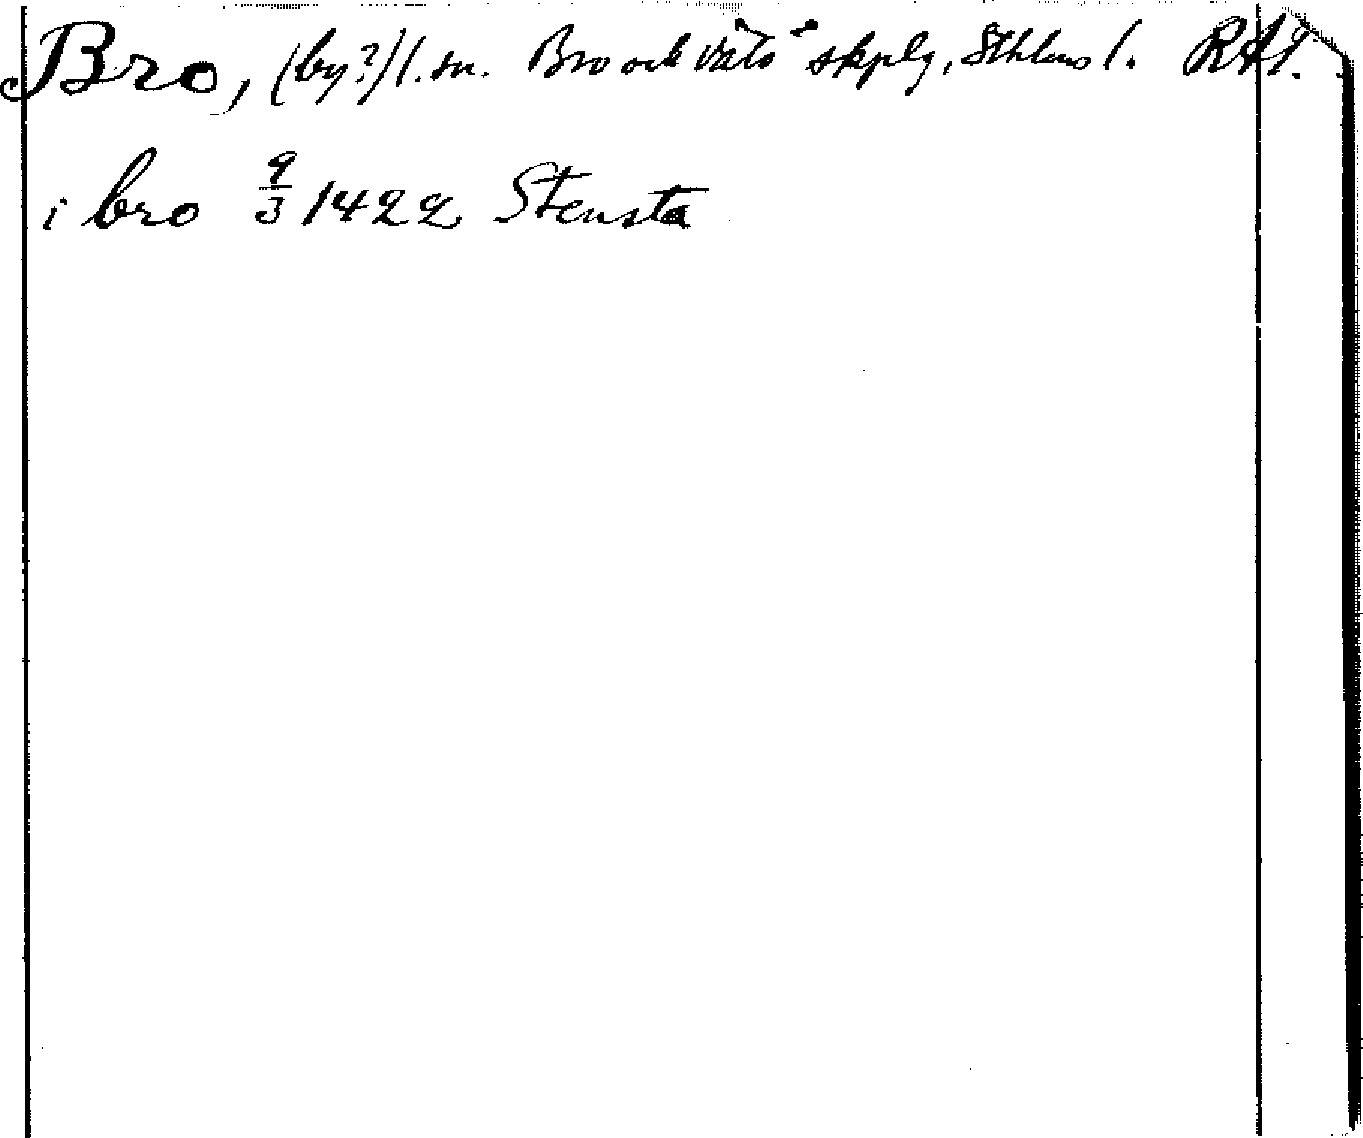 Bro, (by?) l. sn. Bro och Vätö skplg, Sthlms l. RAP.
i bro 9/3 1422 Stensta